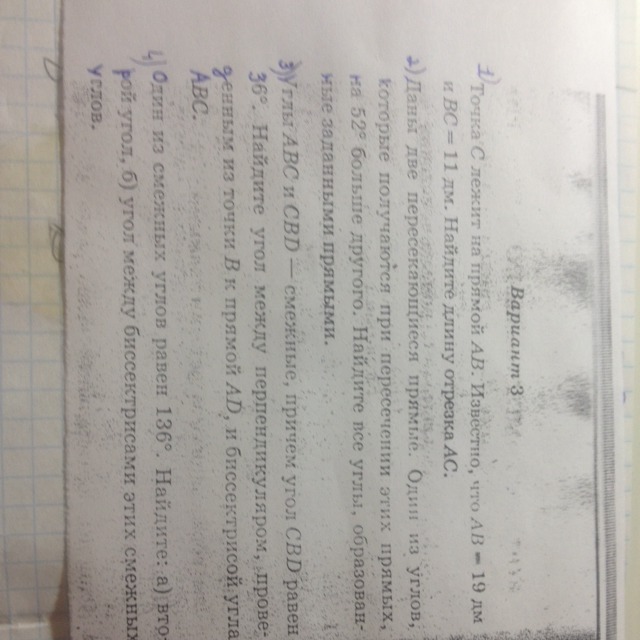 Вариант 3
1) Точка C лежит на прямой AB. Известно, что AB = 19 дм
и BC = 11 дм. Найдите длину отрезка AC.
2) Даны две пересекающиеся прямые. Один из углов,
которые получаются при пересечении этих прямых,
на 52° больше другого. Найдите все углы, образован-
ные заданными прямыми.
3) Углы ABC и CBD — смежные, причем угол CBD равен
36°. Найдите угол между перпендикуляром, прове-
денным из точки B к прямой AD, и биссектрисой угла
ABC.
4) Один из смежных углов равен 136°. Найдите: а) вто-
рой угол, б) угол между биссектрисами этих смежных
углов.